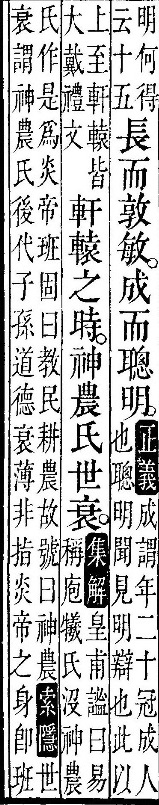 明何得
云十五
長而敦敏。成而聰明。
正義成謂年二十冠成人
也聰明聞見明辯也此以
上至軒轅皆
大戴禮文
軒轅之時。神農氏世衰。
集解皇甫謐曰易
稱庖犧氏沒神農
氏作是爲炎帝班固曰教民耕農故號曰神農索隱世
衰謂神農氏後代子孫道德衰薄非指炎帝之身卽班